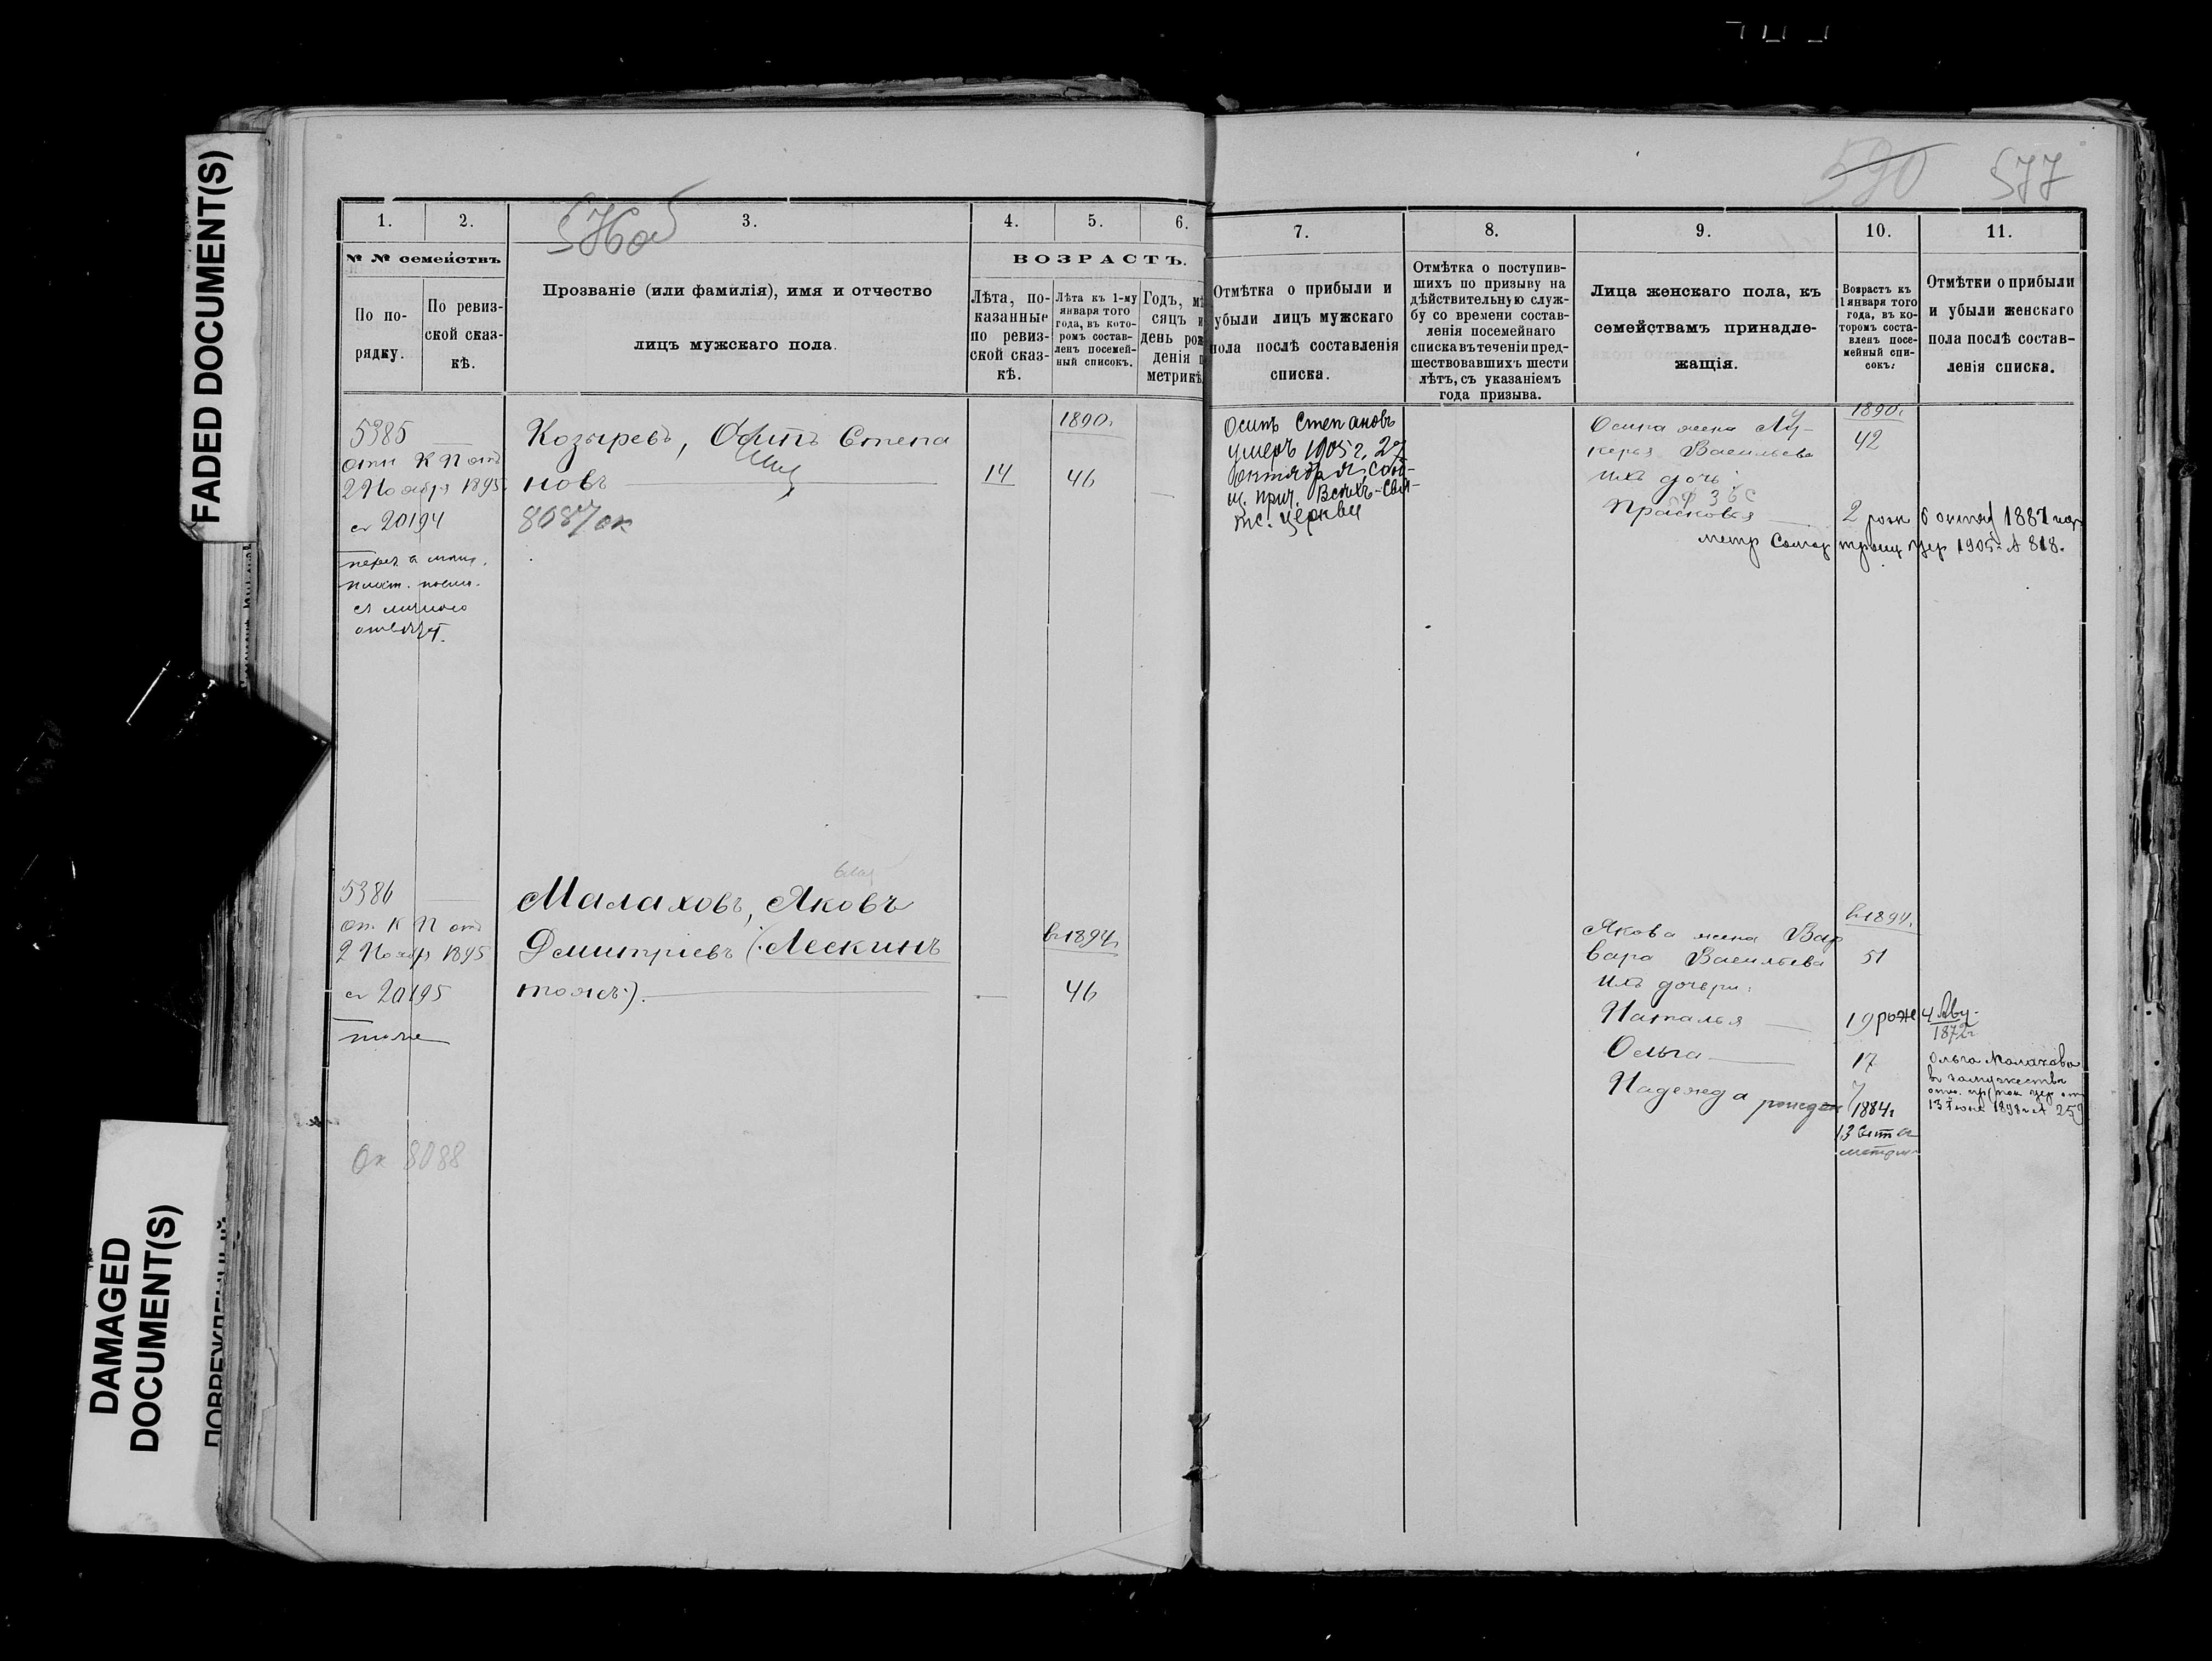 FADED DOCUMENT(S)
DAMAGED
DOCUMENT(S)
590 577
576 об
1. 2. 3. 4. 5. 6.
№ № семействъ
По по-
рядку.
По ревиз-
ской сказ-
кѣ.
Прозваніе (или фамилія), имя и отчество
лицъ мужскаго пола.
ВОЗРАСТЪ.
Лѣта, по-
казанные
по ревиз-
ской сказ-
кѣ.
Лѣта къ 1-му
января того
года, въ кото-
ромъ состав-
ленъ посемей-
ный списокъ.
Годъ, мѣ
сяцъ и
день рож
денія п
метрикѣ
5385
2 Ноября 1895.
20194
Козыревъ, Осипъ Степа
новъ
8087 ок
14
1890.
46
5386
2 Ноября 1895
20195
тоже
Ок 8088
Малаховъ, Яковъ
Дмитріевъ (Лескинъ
тожъ).
в 1894.
46
7. 8. 9. 10. 11.
Отмѣтка о прибыли и
убыли лицъ мужскаго
пола послѣ составленія
списка.
Отмѣтка о поступив-
шихъ по призыву на
дѣйствительную служ-
бу со времени состав-
ленія посемейнаго
списка въ теченіи пред-
шествовавшихъ шести
лѣтъ, съ указаніемъ
года призыва.
Лица женскаго пола, къ
семействамъ принадле-
жащія.
Возрастъ къ
1 января того
года, въ ко-
торомъ соста-
вленъ посе-
мейный спи-
сокъ.
Отмѣтки о прибыли
и убыли женскаго
пола послѣ состав-
ленія списка.
Осипъ Степановъ
умеръ 1905 г. 27
Октября. Сооб-
щ. прич. Всѣхъ-Свя-
тс. церкви
Осипа жена Лу-
керья Васильева
ихъ дочь
Прасковья
1890.
42
2 6 1887
1905 г. № 818.
Якова жена Вар
вара Васильева
ихъ дочери:
Наталья
Ольга
Надежда
в 1894.
51
19 рож 4 Авг.
1872 г.
17
7
1884 г.
13
Ольга Малахова
в замужестве
13 1898 г. № 259